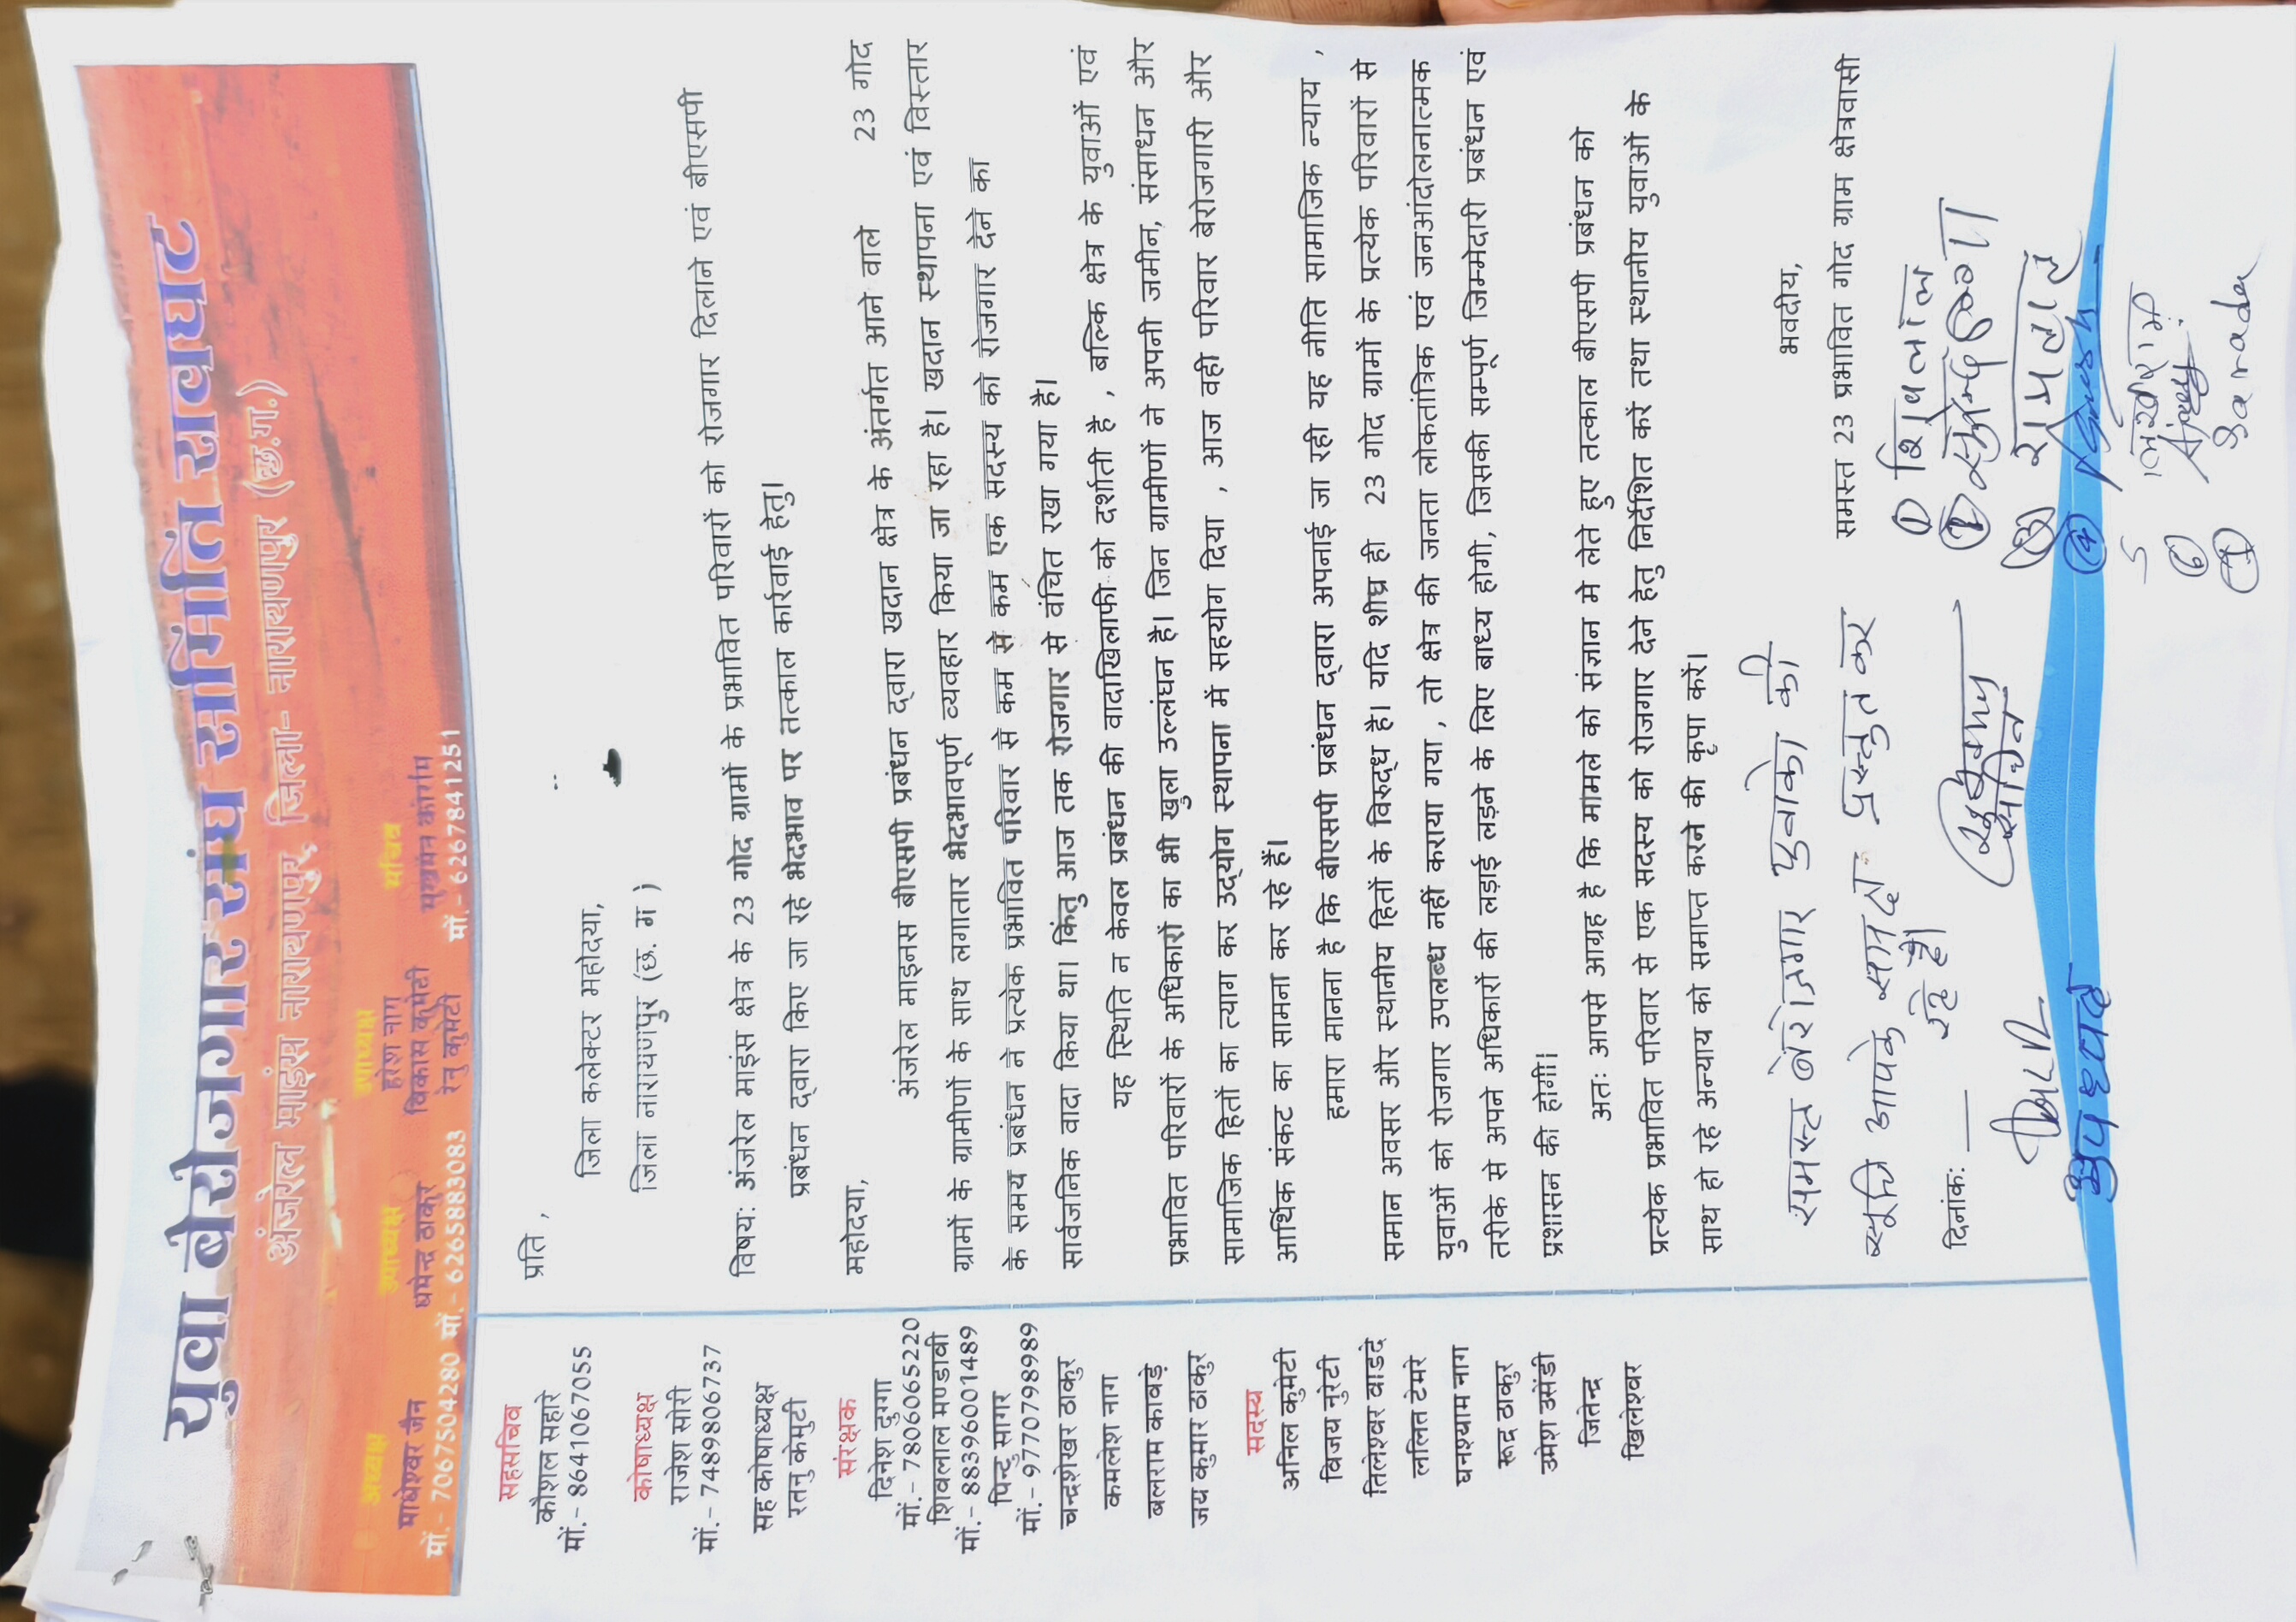 युवा बेरोजगार संघ समिति रावघाट
अंजरेल माइंस नारायणपुर, जिला- नारायणपुर (छ.ग.)
अध्यक्ष
माधेश्वर जैन
मों.- 7067504280
उपाध्यक्ष
धर्मेन्द्र ठाकुर
मों.- 6265883083
उपाध्यक्ष
हरेश नाग
विकास कुमेटी
रेनु कुमेटी
सचिव
सुखमन कोर्राम
मों.- 6267841251
सहसचिव
कौशल सहारे
मों.- 8641067055
कोषाध्यक्ष
राजेश सोरी
मों.- 7489806737
सह कोषाध्यक्ष
रतनु केमुटी
संरक्षक
दिनेश दुग्गा
मों.- 7806065220
शिवलाल मण्डावी
मों.- 88396001489
पिन्टु सागर
मों.- 9770798989
चन्द्रशेखर ठाकुर
कमलेश नाग
बलराम कावड़े
जय कुमार ठाकुर
सदस्य
अनिल कुमेटी
विजय नुरेटी
तिलेश्वर वाडदे
ललित टेमरे
घनश्याम नाग
रूद्र ठाकुर
उमेश उसेंडी
जितेन्द्र
खिलेश्वर
प्रति ,
जिला कलेक्टर महोदया,
जिला नारायणपुर (छ. ग )
विषय: अंजरेल माइंस क्षेत्र के 23 गोद ग्रामों के प्रभावित परिवारों को रोजगार दिलाने एवं बीएसपी
प्रबंधन द्वारा किए जा रहे भेदभाव पर तत्काल कार्रवाई हेतु।
महोदया,
अंजरेल माइनस बीएसपी प्रबंधन द्वारा खदान क्षेत्र के अंतर्गत आने वाले 23 गोद
ग्रामों के ग्रामीणों के साथ लगातार भेदभावपूर्ण व्यवहार किया जा रहा है। खदान स्थापना एवं विस्तार
के समय प्रबंधन ने प्रत्येक प्रभावित परिवार से कम से कम एक सदस्य को रोजगार देने का
सार्वजनिक वादा किया था। किंतु आज तक रोजगार से वंचित रखा गया है।
यह स्थिति न केवल प्रबंधन की वादाखिलाफी को दर्शाती है , बल्कि क्षेत्र के युवाओं एवं
प्रभावित परिवारों के अधिकारों का भी खुला उल्लंघन है। जिन ग्रामीणों ने अपनी जमीन, संसाधन और
सामाजिक हितों का त्याग कर उद्योग स्थापना में सहयोग दिया , आज वही परिवार बेरोजगारी और
आर्थिक संकट का सामना कर रहे हैं।
हमारा मानना है कि बीएसपी प्रबंधन द्वारा अपनाई जा रही यह नीति सामाजिक न्याय ,
समान अवसर और स्थानीय हितों के विरुद्ध है। यदि शीघ्र ही 23 गोद ग्रामों के प्रत्येक परिवारों से
युवाओं को रोजगार उपलब्ध नहीं कराया गया , तो क्षेत्र की जनता लोकतांत्रिक एवं जनआंदोलनात्मक
तरीके से अपने अधिकारों की लड़ाई लड़ने के लिए बाध्य होगी, जिसकी सम्पूर्ण जिम्मेदारी प्रबंधन एवं
प्रशासन की होगी।
अतः आपसे आग्रह है कि मामले को संज्ञान मे लेते हुए तत्काल बीएसपी प्रबंधन को
प्रत्येक प्रभावित परिवार से एक सदस्य को रोजगार देने हेतु निर्देशित करें तथा स्थानीय युवाओं के
साथ हो रहे अन्याय को समाप्त करने की कृपा करें।
समस्त बेरोजगार युवाको की
सूचि आपके समक्ष प्रस्तुत कर
रहे हैं।
दिनांक:
भवदीय,
समस्त 23 प्रभावित गोद ग्राम क्षेत्रवासी
① शिवलाल
③ रामलाल
④
5 लखीराम
⑥
⑦ Sarada
उपाध्यक्ष
सचिव